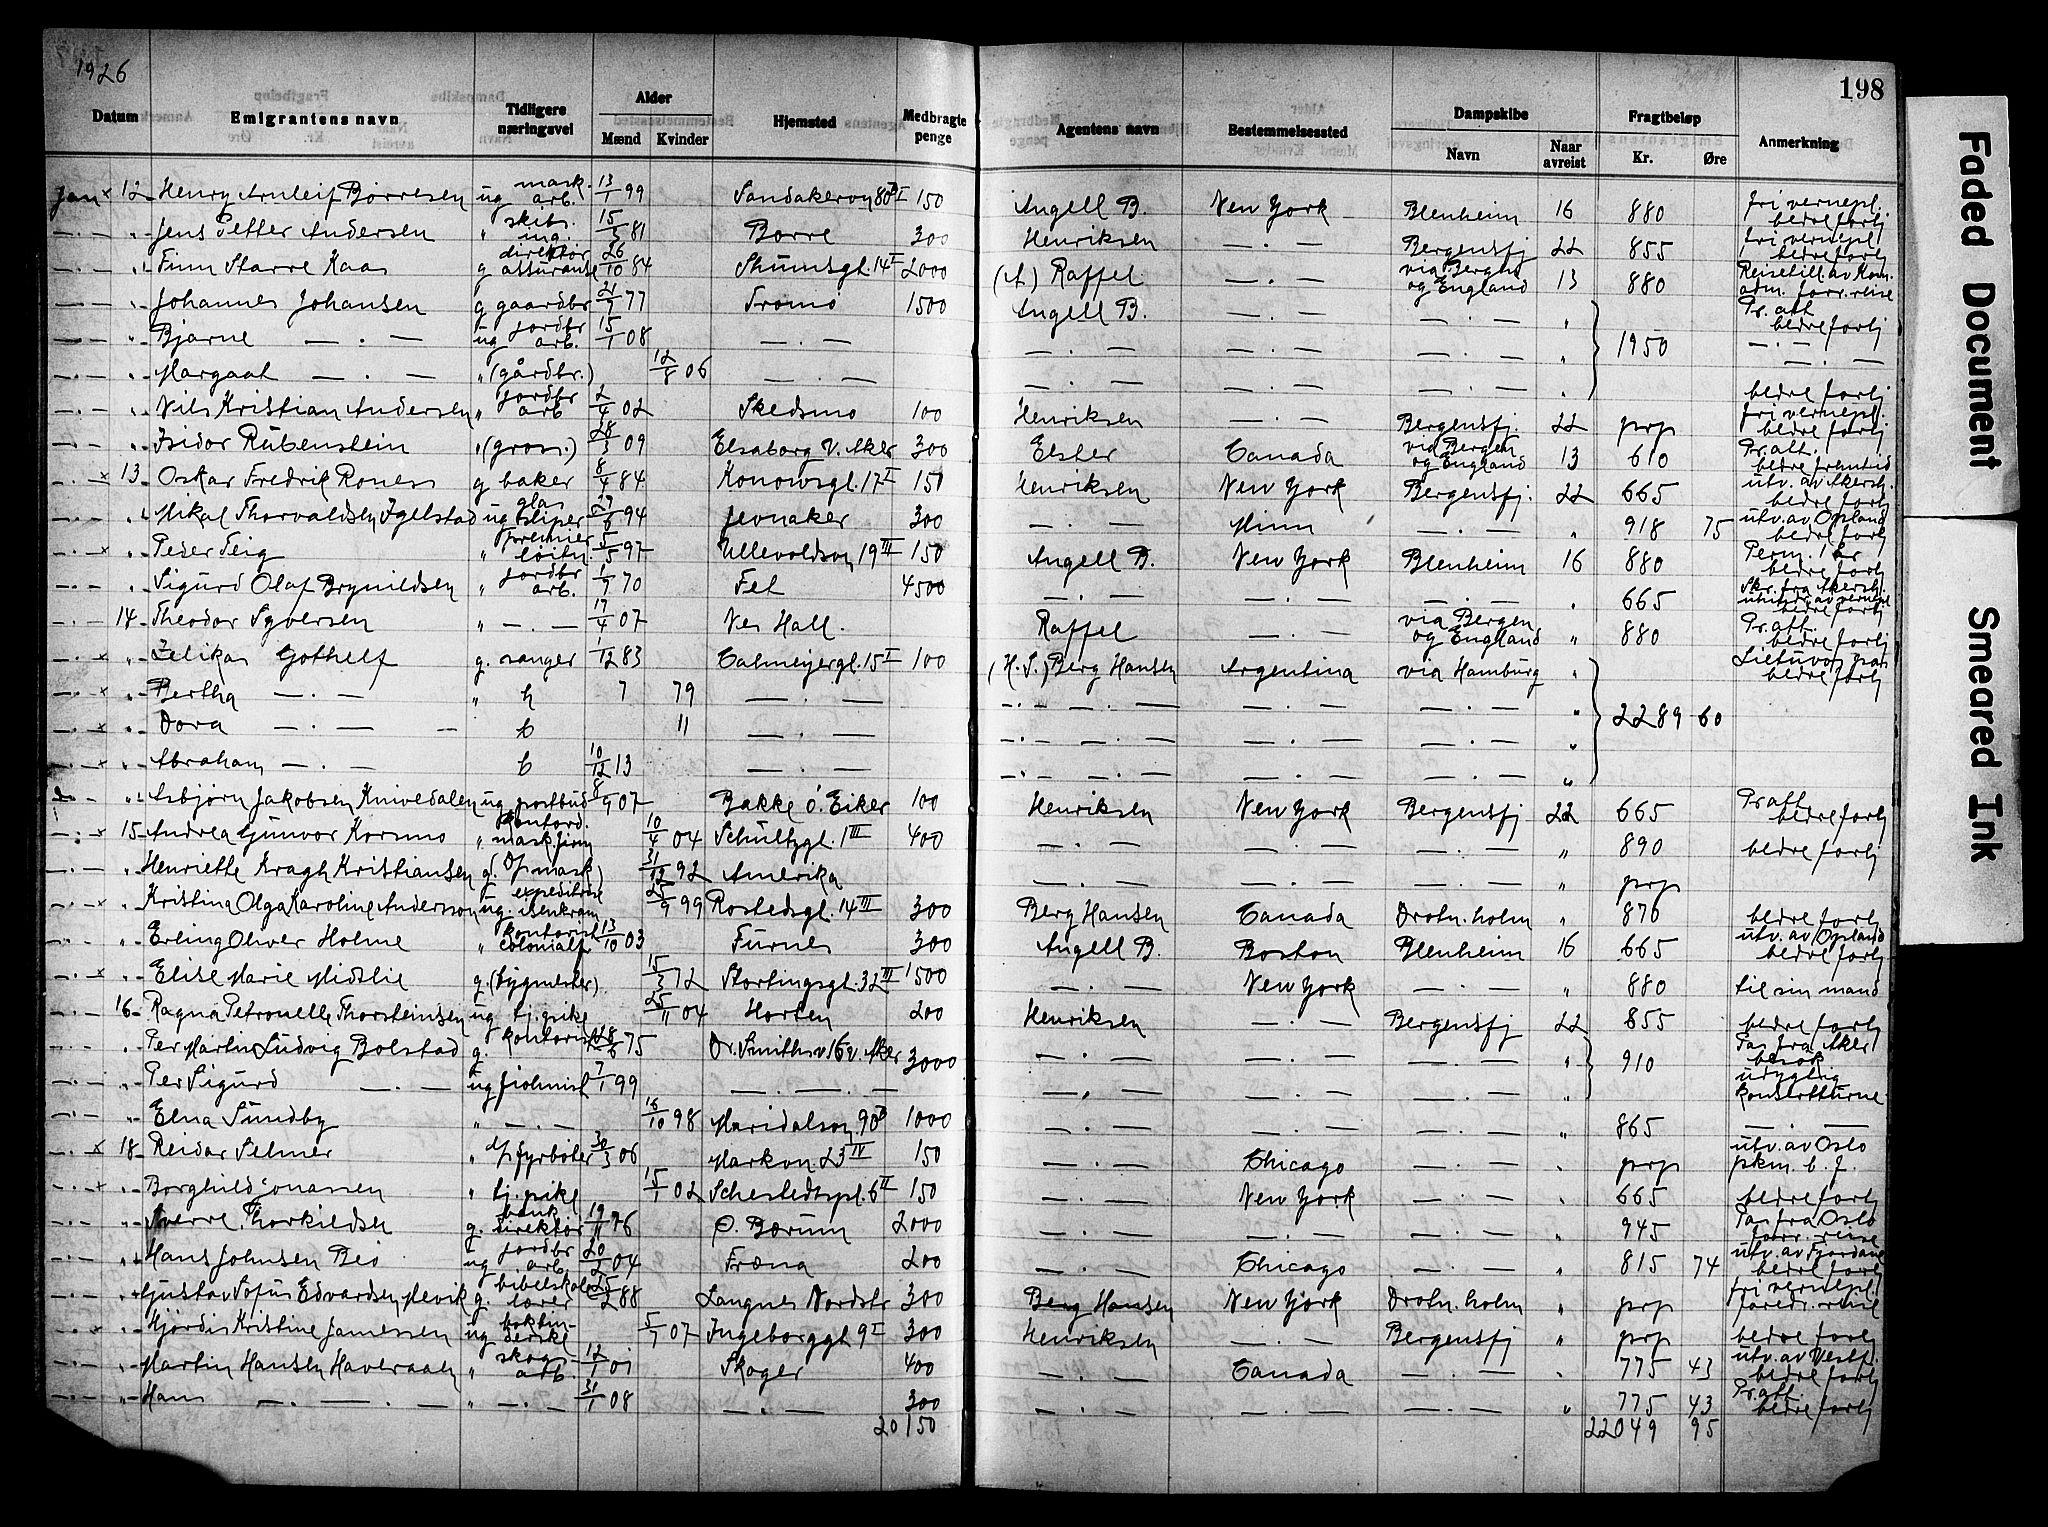 1926
198
Datum Emigrantens navn Tidligere næringsvei Alder Mænd Kvinder Hjemsted Medbragte penge Agentens navn Bestemmelsessted Dampskibe Navn Naar avreist Fragtbeløp Kr. Øre Anmerkning
Jan × 12 Henry Arnleif Børresen ug mask. arb. 13/1 99 Sandakervn 80 I 150 Angell B. New York Blenheim 16 880 fri vernepl. bedre forhj
" Jens Petter Andersen " skibs ing. 15/3 81 Borre 300 Henriksen — . — Bergensfj 22 855 fri vernepl bedre forhj
" Finn Starre Kaas g direktør assuranse 26/10 84 Thumsgt. 14 I 2000 (A) Raffel — . — via Bergen og England 13 880 Reisetill. av Kom. adm. forr. reise
" Johannes Johansen g gaardbr 21/7 77 Tromø 1500 Angell B. — . — — . — " Pr. att bedre forhj
" Bjarne — . — ug jordbr arb. 15/1 08 — . — — . — — . — — . — " 1950 — . —
" Margaat — . — " (gårdbr.) 12/8 06 — . — — . — — . — — . — " bedre forhj
" Nils Kristian Andersen " jordbr arb 2/4 02 Skedsmo 100 Henriksen — . — Bergensfj. 22 prp fri vernepl. bedre forhj
" Isidor Rubenstein " (gross.) 28/3 09 Elsaborg V. Aker 300 Elster Canada via Bergen og England 13 610 Pr. att. bedre fremtid
× 13 Oskar Fredrik Rones g baker 8/4 84 Konowsgt. 17 I 150 Henriksen New York Bergensfj. 22 665 utv. av Akersh. bedre forhj
" Mikal Thorvaldsen Igelstad ug glas sliper 94 Jevnaker 300 — . — Minn — . — " 918 75 utv. av Opland bedre forhj
× " Peder Teig " premier løitn. 5/5 97 Ullevoldsvn 19 III 150 Angell B. New York Blenheim 16 880 Perm. 1 år bedre forhj
" Sigurd Olaf Brynildsen " jordbr arb. 1/9 70 Fet 4500 — . — — . — — . — " 665 Skr. fra Akersh. bedre forhj
14 Theodor Syversen " — . — 17/4 07 Nes Hall. Raffel — . — via Bergen og England " 880 Pr. att. bedre forhj
× " Zelikas Gothelf g. sanger 1/12 83 Calmeyergt. 15 I 100 (H. S.) Berg Hansen Argentina via Hamburg " Lietuvos pas bedre forhj
× " Bertha — . — " h 7 79 — . — — . — — . — — . — " 2289 60
× " Dora — . — b 11 — . — — . — — . — — . — "
× " Abraham — . — b 10/12 13 — . — — . — — . — — . — "
" Asbjørn Jakobsen Knivedalen ug postbud 8/9 07 Bakke ö. Eiker 100 Henriksen New York Bergensfj 22 665 Pr att bedre forhj
× 15 Andrea Gunvor Korsmo " kontord. 10/4 04 Schultzgt. 1 III 400 — . — — . — — . — " 890 bedre forhj
" Henriette Kragh Kristiansen g. (f/mask) 31/12 92 Amerika — . — — . — — . — " prp
× " Kristina Olga Karoline Andersson ug. expeditrise isenkram 25/9 99 Rostedsgt. 14 III 300 Berg Hansen Canada Drotn. holm " 870 bedre forhj
" Erling Oliver Holme " kontorist colonialf 13/10 03 Furnes 300 Angell B. Boston Blenheim 16 665 utv. av Opland bedre forhj
× " Elise Marie Midtlie g. (bygmester) 15/3 72 Stortingsgt. 32 III 1500 New York — . — " 880 til sin mand
16 Ragna Petronelle Thorsteinsen ug tj. pike 25/11 04 Horten 200 Henriksen — . — Bergensfj 22 855 bedre forhj
" Per Martin Ludvig Bolstad g. kontorist 75 Dr. Smithsv 16 v. Aker 3000 — . — — . — — . — " 910 Pas fra Aker besøk
" Per Sigurd — . — ug fiolinist 7/1 99 — . — — . — — . — — . — " udyglig konsertturne
" Elna Sundby " — . — 16/10 98 Maridalsvn. 90 B 1000 — . — — . — — . — " 865 — . —
× 18 Reidar Selmer " f/fyrbøter 30/3 06 Markvn. 23 IV 150 — . — Chicago — . — " prp utv. av Oslo pkm. b. f.
× " Borghild Jonassen " tj. pike 15/1 02 Schestedtspl. 6 II 150 — . — New York — . — " 665 bedre forhj
" Sverre Thorkildsen g. bank direktør 19/11 76 Ø. Bærum 2000 — . — — . — — . — " 945 Pas fra Oslo forr. reise
" Hans Johnsen Bø ug jordbr arb. 20/2 04 Fræna 200 — . — Chicago — . — " 815 74 utv. av Fjordane bedre forhj
" Gustav Sofus Edvardsen Mevik g. bibelskole lærer 25/2 88 Langnes Nordstr 300 Berg Hansen New York Drotn. holm " prp fri vernepl. foredr. reise
× " Hjørdis Kristine Jamessen ug bokbinderske 5/7 07 Ingeborggt 9 I 300 Henriksen — . — Bergensfj " prp bedre forhj
" Martin Hansen Haveraaen " skogs arb. 12/1 01 Skoger 400 — . — Canada — . — " 775 43 utv. av Vestf. bedre forhj
" Hans — . — " — . — 31/1 08 — . — 300 — . — — . — — . — " 775 43 Pr. att. bedre forhj
20150 22049 95
Faded Document
Smeared Ink